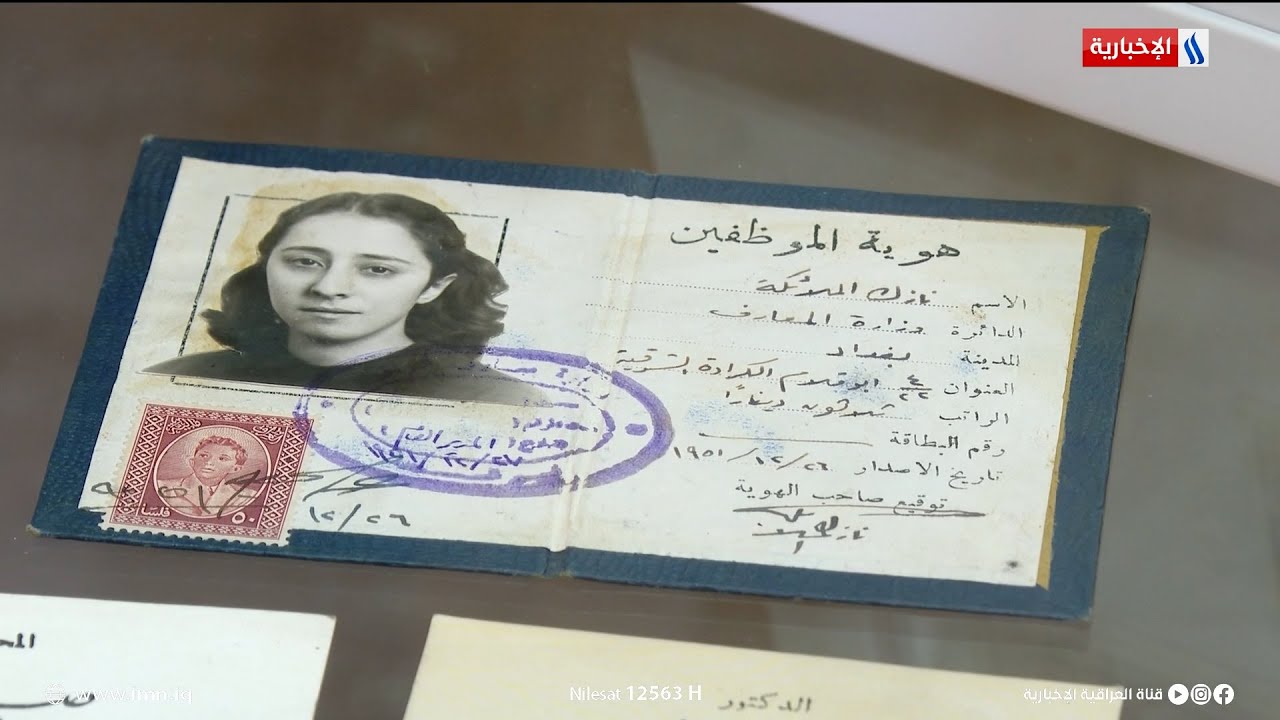 الإخبارية
هوية الموظفين
الاسم نازك الملائكة
الدائرة وزارة المعارف
المدينة بغداد
العنوان ٤/٢٢ ابو قلام الكرادة الشرقية
الراتب ثلاثون ديناراً
رقم البطاقة
تاريخ الاصدار ٢٦/١٢/١٩٥١
توقيع صاحب الهوية
نازك
٥٠ فلسا
١٢/٢٦
الدكتور
www.imn.iq
Nilesat 12563 H
قناة العراقية الإخبارية